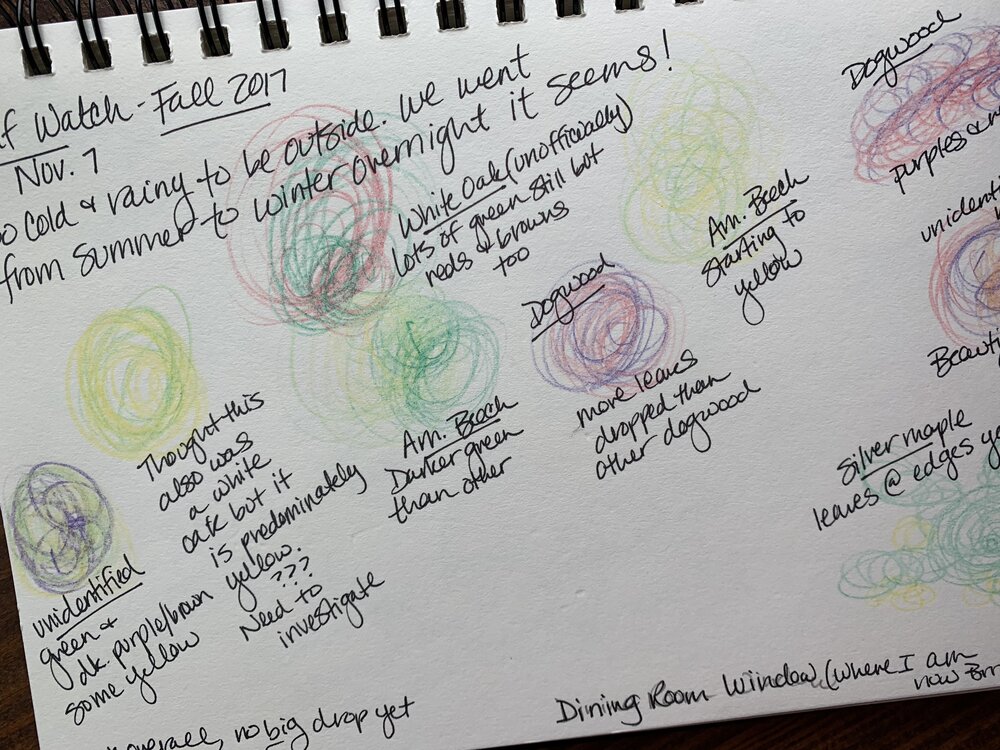 f Watch - Fall 2017
Nov. 7
oo cold & rainy to be outside. We went
from summer to winter overnight it seems!
White Oak (unofficially)
lots of green still but
reds & browns
too
Am. Beech
starting to
yellow
Dogwood
purples & r
unidenti
Beauti
Dogwood
more leaves
dropped than
other dogwood
Am. Beech
Darker green
than other
Thought this
also was
a white
oak but it
is predominately
yellow.
???
Need to
investigate
unidentified
green &
dk. purple/brown
some yellow
Silver maple
leaves @ edges ye
overall, no big drop yet
Dining Room Window (where I am
now Brr